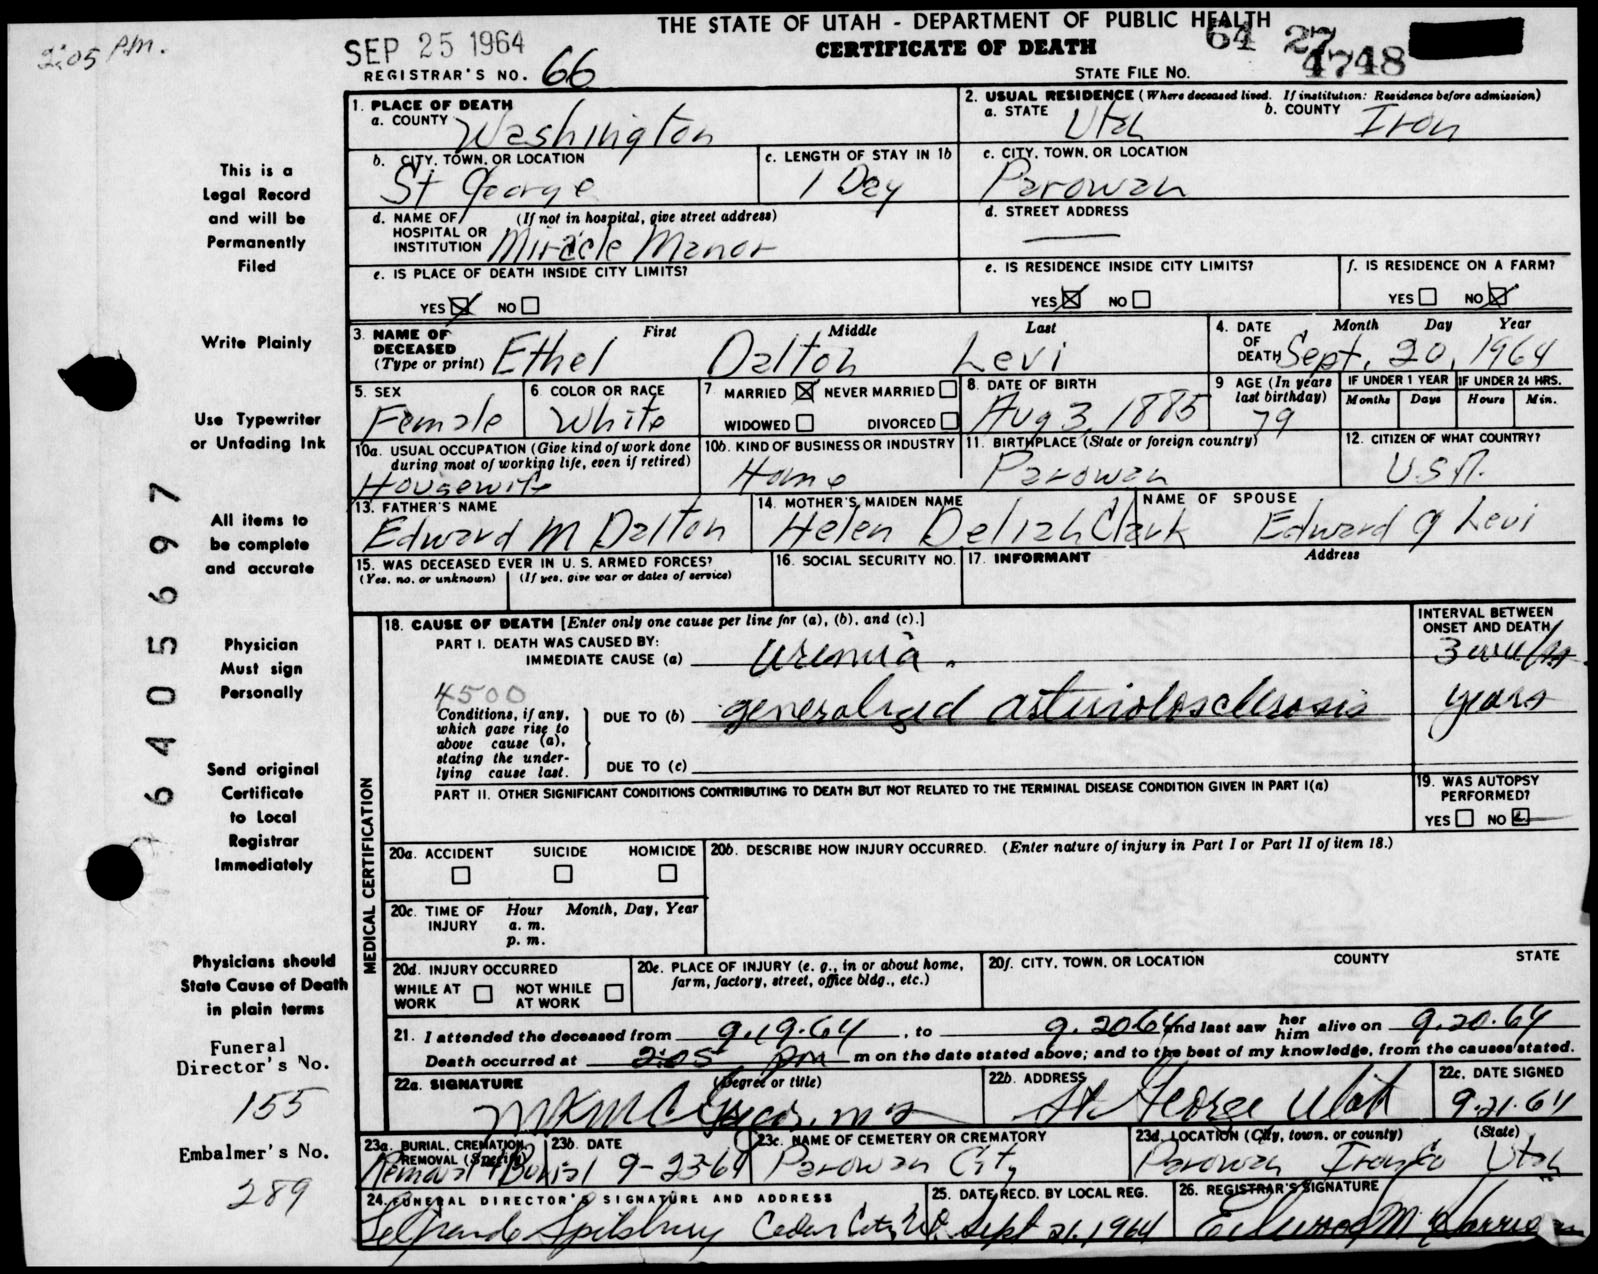 THE STATE OF UTAH - DEPARTMENT OF PUBLIC HEALTH
2:05 P.M.
SEP 25 1964
CERTIFICATE OF DEATH
64 27
4748
REGISTRAR'S NO. 66
STATE FILE NO.
1. PLACE OF DEATH
a. COUNTY Washington
2. USUAL RESIDENCE (Where deceased lived. If institution: Residence before admission)
a. STATE Utah b. COUNTY Iron
b. CITY, TOWN, OR LOCATION
St George
c. LENGTH OF STAY IN 1b
1 Day
c. CITY, TOWN, OR LOCATION
Parowan
d. NAME OF (If not in hospital, give street address)
HOSPITAL OR
INSTITUTION Miracle Manor
d. STREET ADDRESS
e. IS PLACE OF DEATH INSIDE CITY LIMITS?
YES NO
e. IS RESIDENCE INSIDE CITY LIMITS?
YES NO
f. IS RESIDENCE ON A FARM?
YES NO
3. NAME OF DECEASED (Type or print)
First Middle Last
Ethel Dalton Levi
4. DATE OF DEATH
Month Day Year
Sept. 20, 1964
5. SEX
Female
6. COLOR OR RACE
White
7 MARRIED NEVER MARRIED
WIDOWED DIVORCED
8. DATE OF BIRTH
Aug 3, 1885
9 AGE (In years last birthday)
79
IF UNDER 1 YEAR
Months Days
IF UNDER 24 HRS.
Hours Min.
10a. USUAL OCCUPATION (Give kind of work done
during most of working life, even if retired)
Housewife
10b. KIND OF BUSINESS OR INDUSTRY
Home
11. BIRTHPLACE (State or foreign country)
Parowan
12. CITIZEN OF WHAT COUNTRY?
U.S.A.
13. FATHER'S NAME
Edward M Dalton
14. MOTHER'S MAIDEN NAME
Helen Deliah Clark
NAME OF SPOUSE
Edward G Levi
15. WAS DECEASED EVER IN U. S. ARMED FORCES?
(Yes, no, or unknown) (If yes, give war or dates of service)
16. SOCIAL SECURITY NO.
17. INFORMANT Address
18. CAUSE OF DEATH [Enter only one cause per line for (a), (b), and (c).]
PART I. DEATH WAS CAUSED BY:
IMMEDIATE CAUSE (a) uremia.
INTERVAL BETWEEN
ONSET AND DEATH
3 weeks
4500
Conditions, if any,
which gave rise to
above cause (a),
stating the under-
lying cause last.
DUE TO (b) generalized arteriolosclerosis
years
DUE TO (c)
PART II. OTHER SIGNIFICANT CONDITIONS CONTRIBUTING TO DEATH BUT NOT RELATED TO THE TERMINAL DISEASE CONDITION GIVEN IN PART I(a)
19. WAS AUTOPSY
PERFORMED?
YES NO
MEDICAL CERTIFICATION
20a. ACCIDENT SUICIDE HOMICIDE
20b. DESCRIBE HOW INJURY OCCURRED. (Enter nature of injury in Part I or Part II of item 18.)
20c. TIME OF INJURY
Hour Month, Day, Year
a. m.
p. m.
20d. INJURY OCCURRED
WHILE AT WORK NOT WHILE AT WORK
20e. PLACE OF INJURY (e. g., in or about home,
farm, factory, street, office bldg., etc.)
20f. CITY, TOWN, OR LOCATION COUNTY STATE
21. I attended the deceased from 9.19.64, to 9.20.64 and last saw her him alive on 9.20.64
Death occurred at 2:05 pm m on the date stated above; and to the best of my knowledge, from the causes stated.
22a. SIGNATURE (Degree or title)
22b. ADDRESS
St George Utah
22c. DATE SIGNED
9.21.64
23a. BURIAL, CREMATION,
REMOVAL (Specify)
Removal & Burial
23b. DATE
9-23-64
23c. NAME OF CEMETERY OR CREMATORY
Parowan City
23d. LOCATION (City, town, or county) (State)
Parowan Iron Co Utah
24. FUNERAL DIRECTOR'S SIGNATURE AND ADDRESS
Spilsbury Cedar City, Ut.
25. DATE RECD. BY LOCAL REG.
Sept 21, 1964
26. REGISTRAR'S SIGNATURE
This is a
Legal Record
and will be
Permanently
Filed
Write Plainly
Use Typewriter
or Unfading Ink
All items to
be complete
and accurate
Physician
Must sign
Personally
Send original
Certificate
to Local
Registrar
Immediately
Physicians should
State Cause of Death
in plain terms
Funeral
Director's No.
155
Embalmer's No.
289
6405697